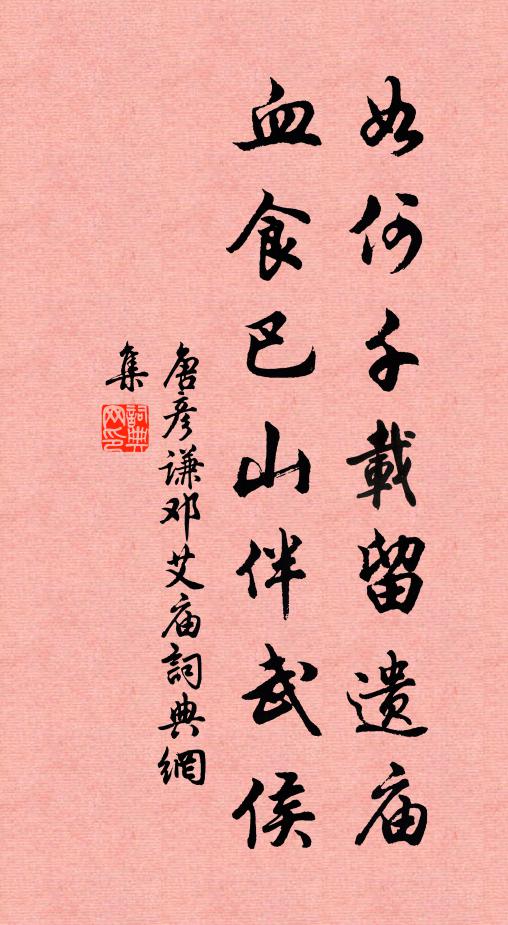 如何千載留遗庙
血食巴山伴武侯
唐彦谦邓艾庙詞典網
集
詞典
网印